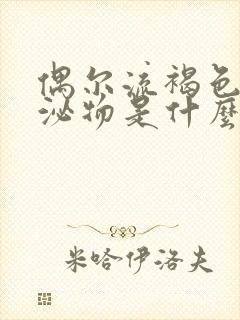 偶尔流褐色
泌物是什麼
米哈伊洛夫